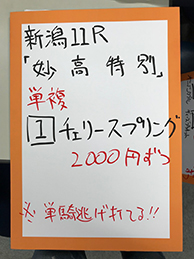 新潟11R
「妙高特別」
単複
1 チェリースプリング
2000円ずつ
※単騎逃げ打てる!!